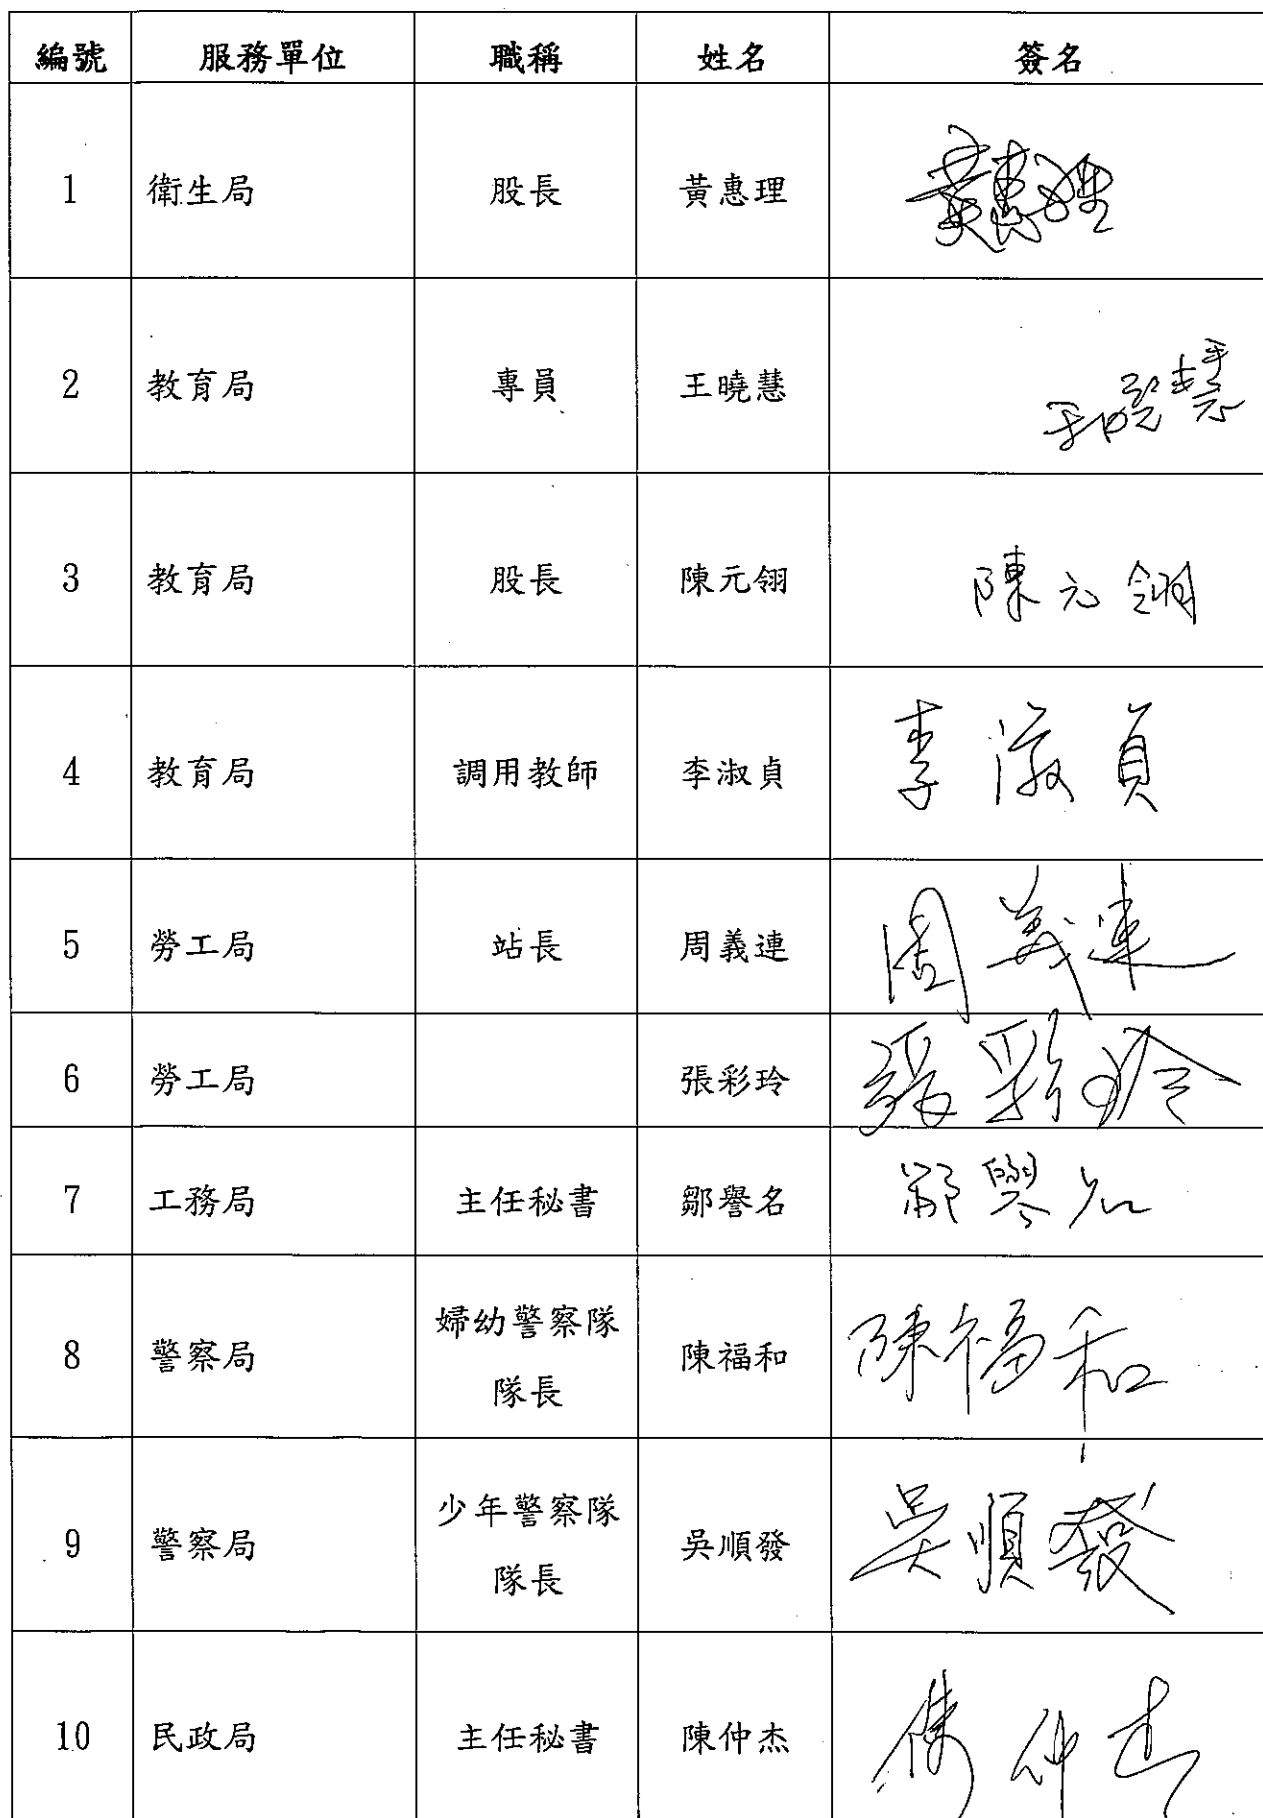 編號 服務單位 職稱 姓名 簽名
1 衛生局 股長 黃惠理 黃惠理
2 教育局 專員 王曉慧 王曉慧
3 教育局 股長 陳元翎 陳元翎
4 教育局 調用教師 李淑貞 李淑貞
5 勞工局 站長 周義連 周義連
6 勞工局 張彩玲 張彩玲
7 工務局 主任秘書 鄒譽名 鄒譽名
8 警察局 婦幼警察隊 陳福和 陳福和
隊長
9 警察局 少年警察隊 吳順發 吳順發
隊長
10 民政局 主任秘書 陳仲杰 陳仲杰